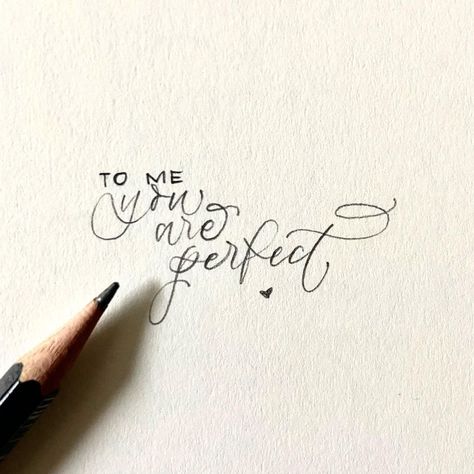 TO ME
you
are
perfect